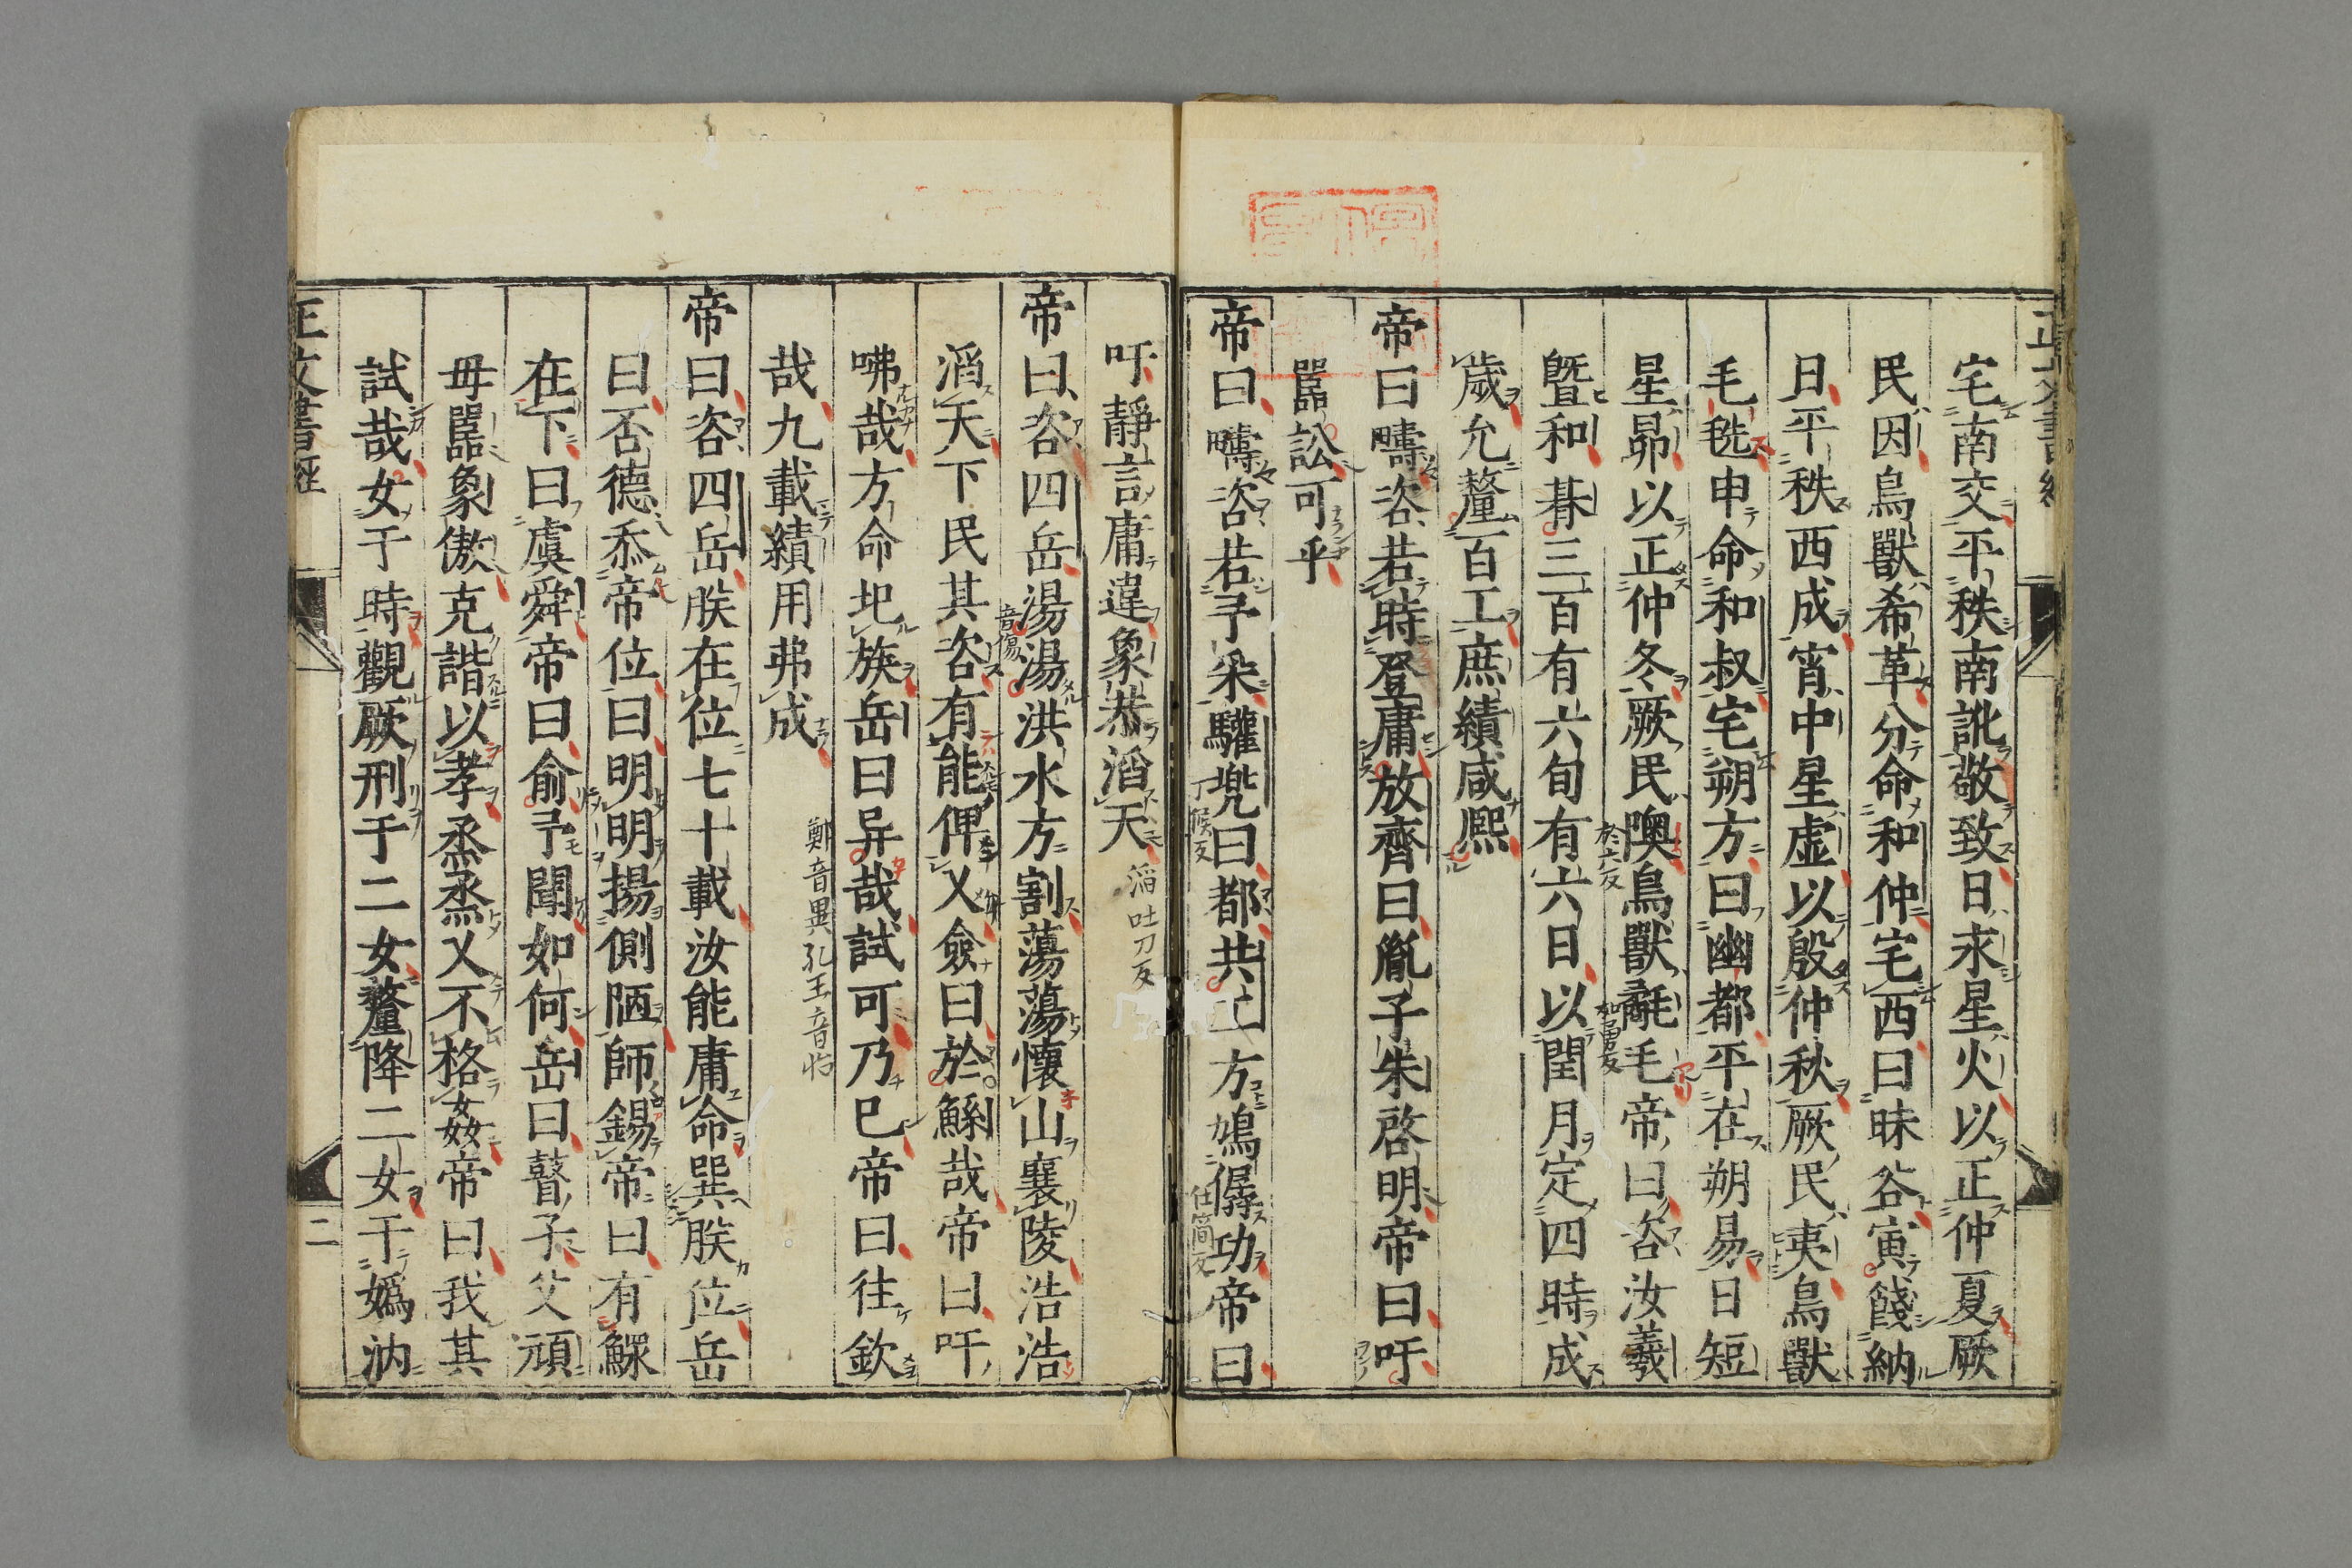 宅南交平秩南訛敬致日永星火以正仲夏厥
民因鳥獸希革分命和仲宅西曰昧谷寅餞納
日平秩西成宵中星虛以殷仲秋厥民夷鳥獸
毛毨申命和叔宅朔方曰幽都平在朔易日短
星昴以正仲冬厥民隩鳥獸氄毛帝曰咨汝羲
於六反
如勇反
暨和朞三百有六旬有六日以閏月定四時成
歲允釐百工庶績咸熈
帝曰疇咨若時登庸放齊曰胤子朱啓明帝曰吁
嚚訟可乎
帝曰疇咨若予采驩兜曰都共工方鳩僝功帝曰
丁侯反
仕簡反
吁靜言庸違象恭滔天
滔吐刀反
帝曰咨四岳湯湯洪水方割蕩蕩懷山襄陵浩浩
音傷
滔天下民其咨有能俾乂僉曰於鯀哉帝曰吁
咈哉方命圯族岳曰异哉試可乃已帝曰往欽
鄭音異孔王音怡
哉九載績用弗成
帝曰咨四岳朕在位七十載汝能庸命巽朕位岳
曰否德忝帝位曰明明揚側陋師錫帝曰有鰥
在下曰虞舜帝曰俞予聞如何岳曰瞽子父頑
母嚚象傲克諧以孝烝烝乂不格姦帝曰我其
試哉女于時觀厥刑于二女釐降二女于嬀汭
正文書經
二